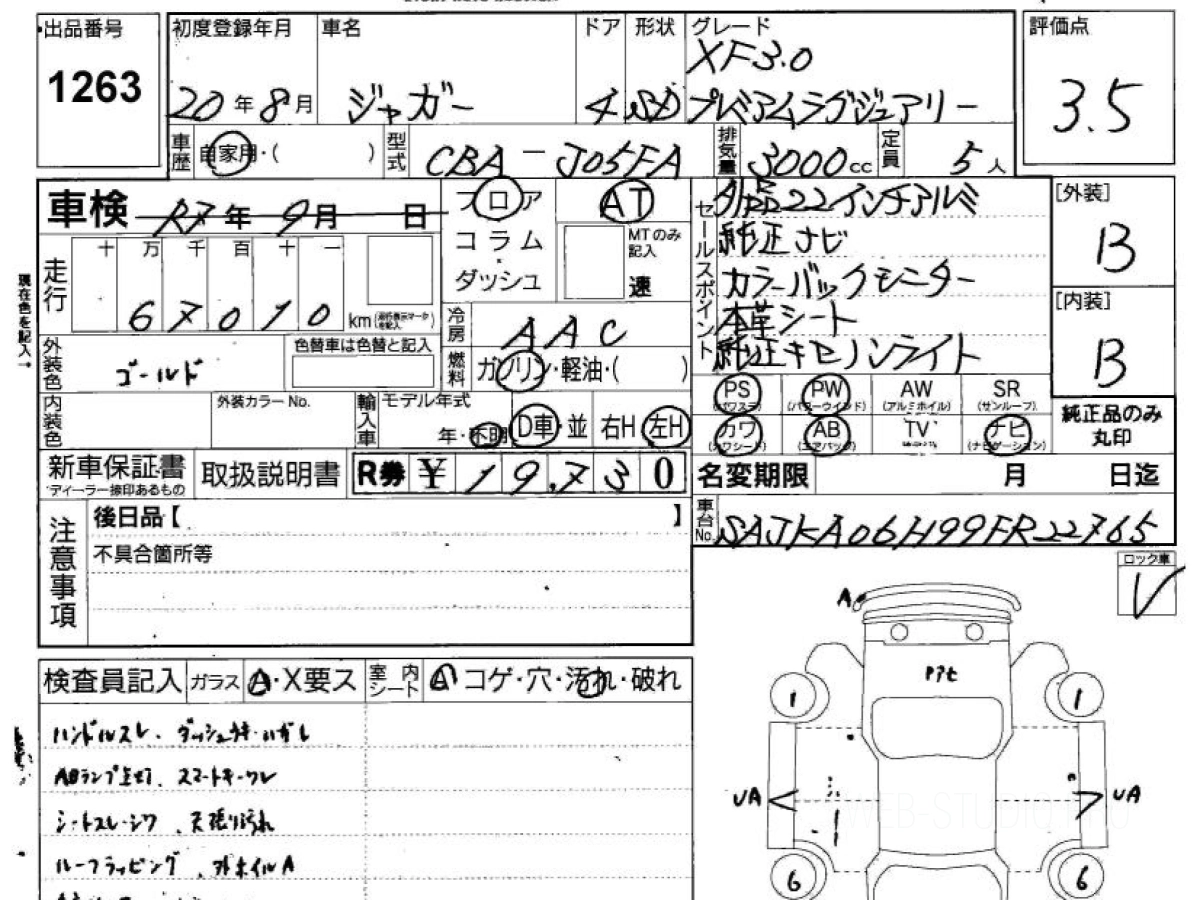 出品番号
1263
初度登録年月
20年8月
車名
ジャガー
ドア
4
形状
SD
グレード
XF3.0
プレミアムラグジュアリー
評価点
3.5
車歴
自家用・( )
型式
CBA-J05FA
排気量
3000cc
定員
5人
車検 R7年9月 日
フロア
コラム
ダッシュ
AT
MTのみ
記入
速
セールスポイント
外品22インチアルミ
純正ナビ
カラーバックモニター
本革シート
純正キセノンライト
[外装]
B
[内装]
B
現在色を記入→
走行
十 万 千 百 十 一
6 7 0 1 0
km
冷房
AAC
燃料
ガソリン・軽油・( )
外装色
ゴールド
色替車は色替と記入
内装色
外装カラーNo.
輸入車
モデル年式
年・不明
D車・並
右H
左H
PS
(パワステ)
PW
(パワーウインド)
AW
(アルミホイル)
SR
(サンルーフ)
カワ
(カワシート)
AB
(エアバッグ)
TV
ナビ
(ナビゲーション)
純正品のみ
丸印
新車保証書
ディーラー捺印あるもの
取扱説明書
R券 ¥ 19,730
名変期限 月 日迄
車台No.
SAJKA06H99FR22765
注意事項
後日品【 】
不具合箇所等
ロック車
V
A
検査員記入
ガラス
A・X要ス
室内
シート
A コゲ・穴・汚れ・破れ
ハンドルスレ、ダッシュウキ・ハガレ
ABランプ点灯、スマートキーワレ
シートスレ・シワ、天張り汚れ
ルーフラッピング、外ホイルA
1
1
UA
UA
6
6
WEB-STUDIO